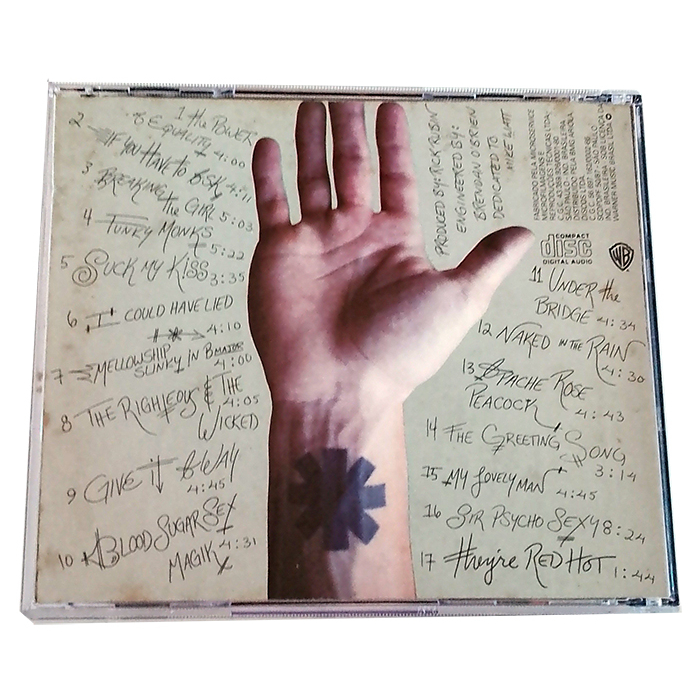 1 the POWER
of EQUALITY 4:00
2 IF YOU HAVE TO ASK 4:11
3 BREAKING the GIRL 5:03
4 FUNKY MONKS 5:22
5 SUCK MY KISS 3:35
6 I COULD HAVE LIED 4:10
7 MELLOWSHIP
SLINKY IN B MAJOR 4:00
8 THE RIGHTEOUS & THE 4:05
WICKED
9 GIVE IT AWAY 4:45
10 BLOOD SUGAR SEX
MAGIK 4:31
PRODUCED BY: RICK RUBIN
ENGINEERED BY:
BRENDAN O'BRIEN
DEDICATED TO
MIKE WATT
COMPACT
disc
DIGITAL AUDIO
WB
11 UNDER the
BRIDGE 4:34
12 NAKED IN THE RAIN 4:30
13 APACHE ROSE
PEACOCK 4:43
14 THE GREETING SONG 3:14
15 MY LOVELY MAN 4:45
16 SIR PSYCHO SEXY 8:24
17 they're RED HOT 1:44